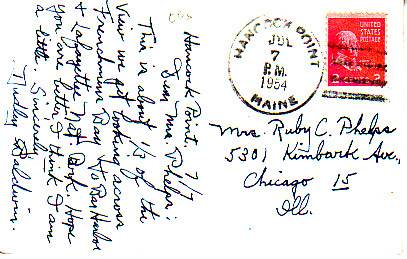 Hancock Point, 7/7
Dear Mrs. Phelps:
This is about 1/3 of the
View we get looking across
Frenchman Bay to Bar Harbor
& Lafayette Nat. Park. Hope
you are better. I think I am
a little. Sincerely
Dudley Baldwin.
HANCOCK POINT
JUL
7
P.M.
1954
MAINE
UNITED STATES
POSTAGE
2
Mrs. Ruby C. Phelps
5301 Kimbark Ave.,
Chicago 15
Ill.